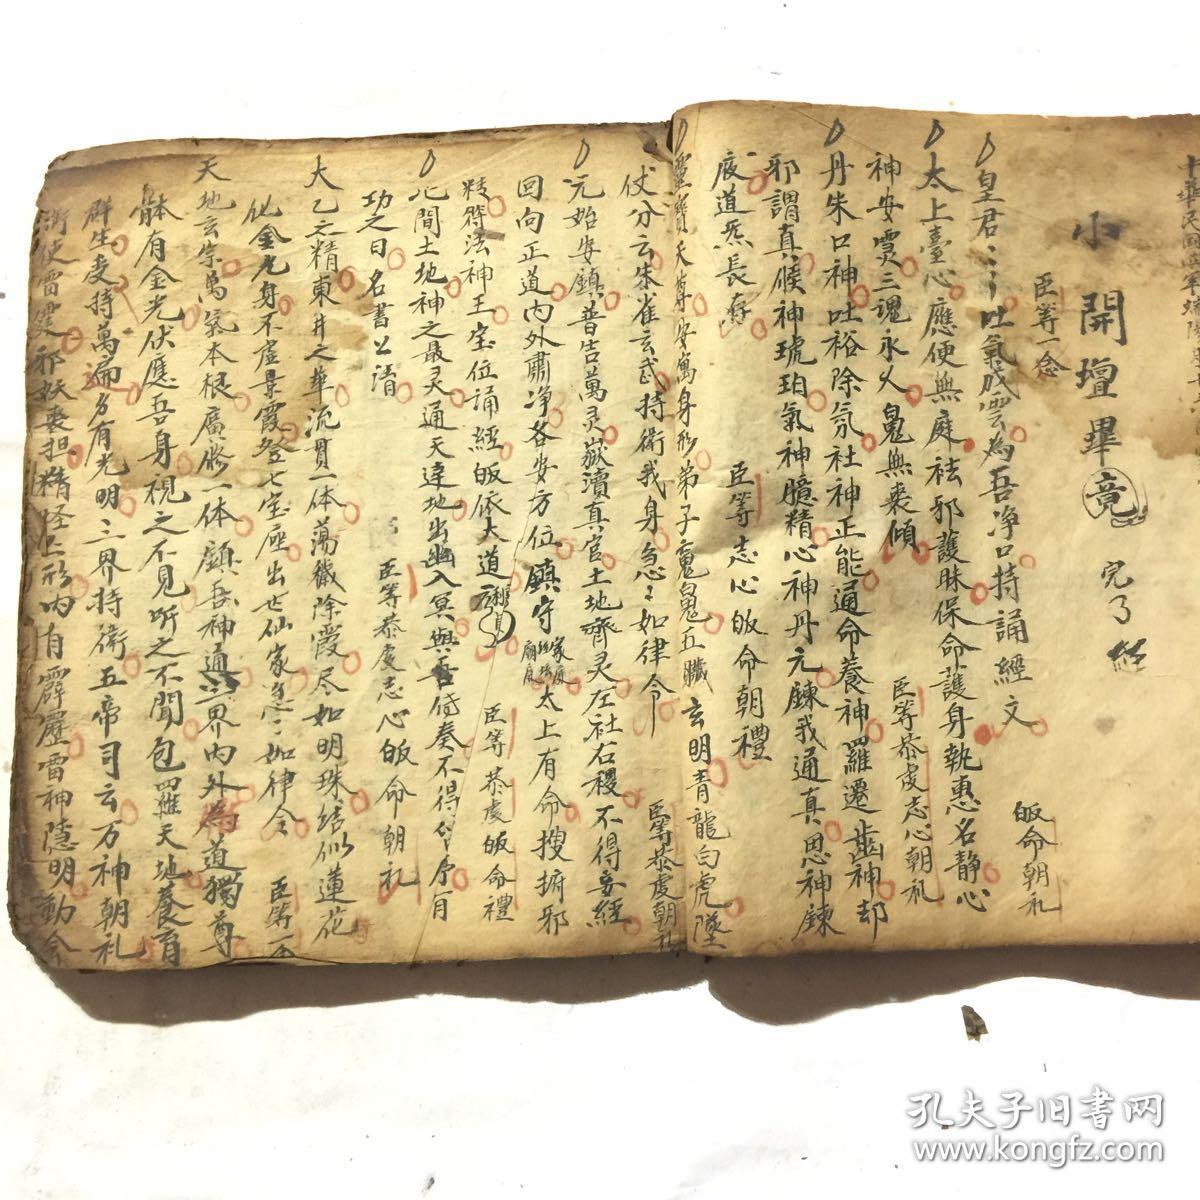 小開壇畢竟 完了 經
臣等一念 皈命朝礼
皇君〻〻吐氣成雲為吾净口持誦經文
太上臺心應便無庭祛邪護脉保命護身執惠名静心
神安灵三魂永久鬼無喪傾 臣等恭虔志心朝礼
丹朱口神吐裕除氛社神正能通命養神羅遷齒神却
邪謂真喉神琥珀氣神臆精心神丹元錬我通真思神錬
液道炁長存 臣等志心皈命朝禮
靈寶天尊安寓身形弟子魂鬼五臟玄明青龍白虎墜
仗分云朱雀玄武持衛我身急〻如律令 臣等恭虔朝礼
元始安鎮普告萬灵嶽瀆真官土地齊灵左社右稷不得妄經
回向正道内外肅净各安方位鎮守太上有命搜捕邪
精 法神王宝位誦經皈依大道 臣等恭虔皈命禮
此間土地神之最灵通天達地出幽入冥與吾傳奏不得 月
功之日名書上清 臣等恭虔志心皈命朝礼
大乙之精東井之華流貫一体蕩穢除霞尽如明珠结似蓮花
化金光身不虛景霞登七宝座出世仙家 如律令 臣等一念
天地玄宗萬氣本根廣修一体 吾神通三界内外為道獨尊
骵有金光伏應吾身視之不見听之不聞包羅天地養育
群生受持萬遍 有光明三界持衛五帝司云万神朝礼
使雷 邪妖喪担精怪 形内有霹靂雷神隱明動令
孔夫子旧书网
www.kongfz.com